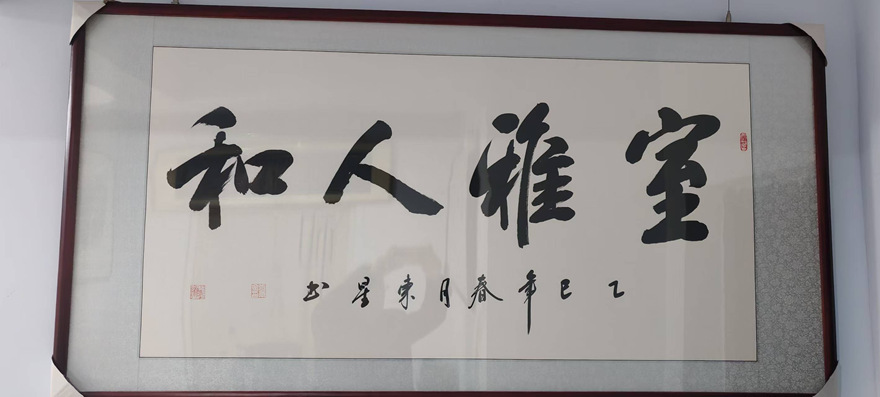 室雅人和
乙巳年春月東星书